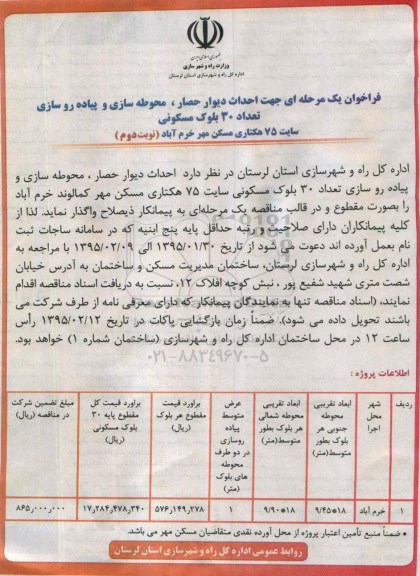 جمهوری اسلامی ایران
وزارت راه و شهرسازی
اداره کل راه و شهرسازی استان لرستان
فراخوان یک مرحله ای جهت احداث دیوار حصار ، محوطه سازی و پیاده رو سازی
تعداد ۳۰ بلوک مسکونی
سایت ۷۵ هکتاری مسکن مهر خرم آباد (نوبت دوم)
اداره کل راه و شهرسازی استان لرستان در نظر دارد احداث دیوار حصار ، محوطه سازی و
پیاده رو سازی تعداد ۳۰ بلوک مسکونی سایت ۷۵ هکتاری مسکن مهر کمالوند خرم آباد
را بصورت مقطوع و در قالب مناقصه یک مرحله‌ای به پیمانکار ذیصلاح واگذار نماید. لذا از
کلیه پیمانکاران دارای صلاحیت و رتبه حداقل پایه پنج ابنیه که در سامانه ساجات ثبت
نام بعمل آورده اند دعوت می شود از تاریخ ۱۳۹۵/۰۱/۳۰ الی ۱۳۹۵/۰۲/۰۹ با مراجعه به
اداره کل راه و شهرسازی لرستان، ساختمان مدیریت مسکن و ساختمان به آدرس خیابان
شصت متری شهید شفیع پور ، نبش کوچه افلاک ۱۲، نسبت به دریافت اسناد مناقصه اقدام
نمایند، (اسناد مناقصه تنها به نمایندگان پیمانکار که دارای معرفی نامه از طرف شرکت می
باشند تحویل داده می شود). ضمناً زمان بازگشایی پاکات در تاریخ ۱۳۹۵/۰۲/۱۲ رأس
ساعت ۱۲ در محل ساختمان اداره کل راه و شهرسازی (ساختمان شماره ۱) خواهد بود.
۰۲۱-۸۸۳۴۹۶۷۰-۵
اطلاعات پروژه :
ردیف
شهر محل اجرا
ابعاد تقریبی محوطه جنوبی هر بلوک بطور متوسط(متر)
ابعاد تقریبی محوطه شمالی هر بلوک بطور متوسط(متر)
عرض متوسط پیاده روسازی در دو طرف محوطه های بلوک (متر)
براورد قیمت مقطوع هر بلوک (ریال)
براورد قیمت کل مقطوع پایه ۳۰ بلوک مسکونی (ریال)
مبلغ تضمین شرکت در مناقصه (ریال)
۱
خرم آباد
۱۸*۹/۴۵
۱۸*۹/۹۰
۱
۵۷۶,۱۴۹,۲۷۸
۱۷,۲۸۴,۴۷۸,۳۴۰
۸۶۵,۰۰۰,۰۰۰
* ضمناً منبع تأمین اعتبار پروژه از محل آورده نقدی متقاضیان مسکن مهر می باشد.
روابط عمومی اداره کل راه و شهرسازی استان لرستان